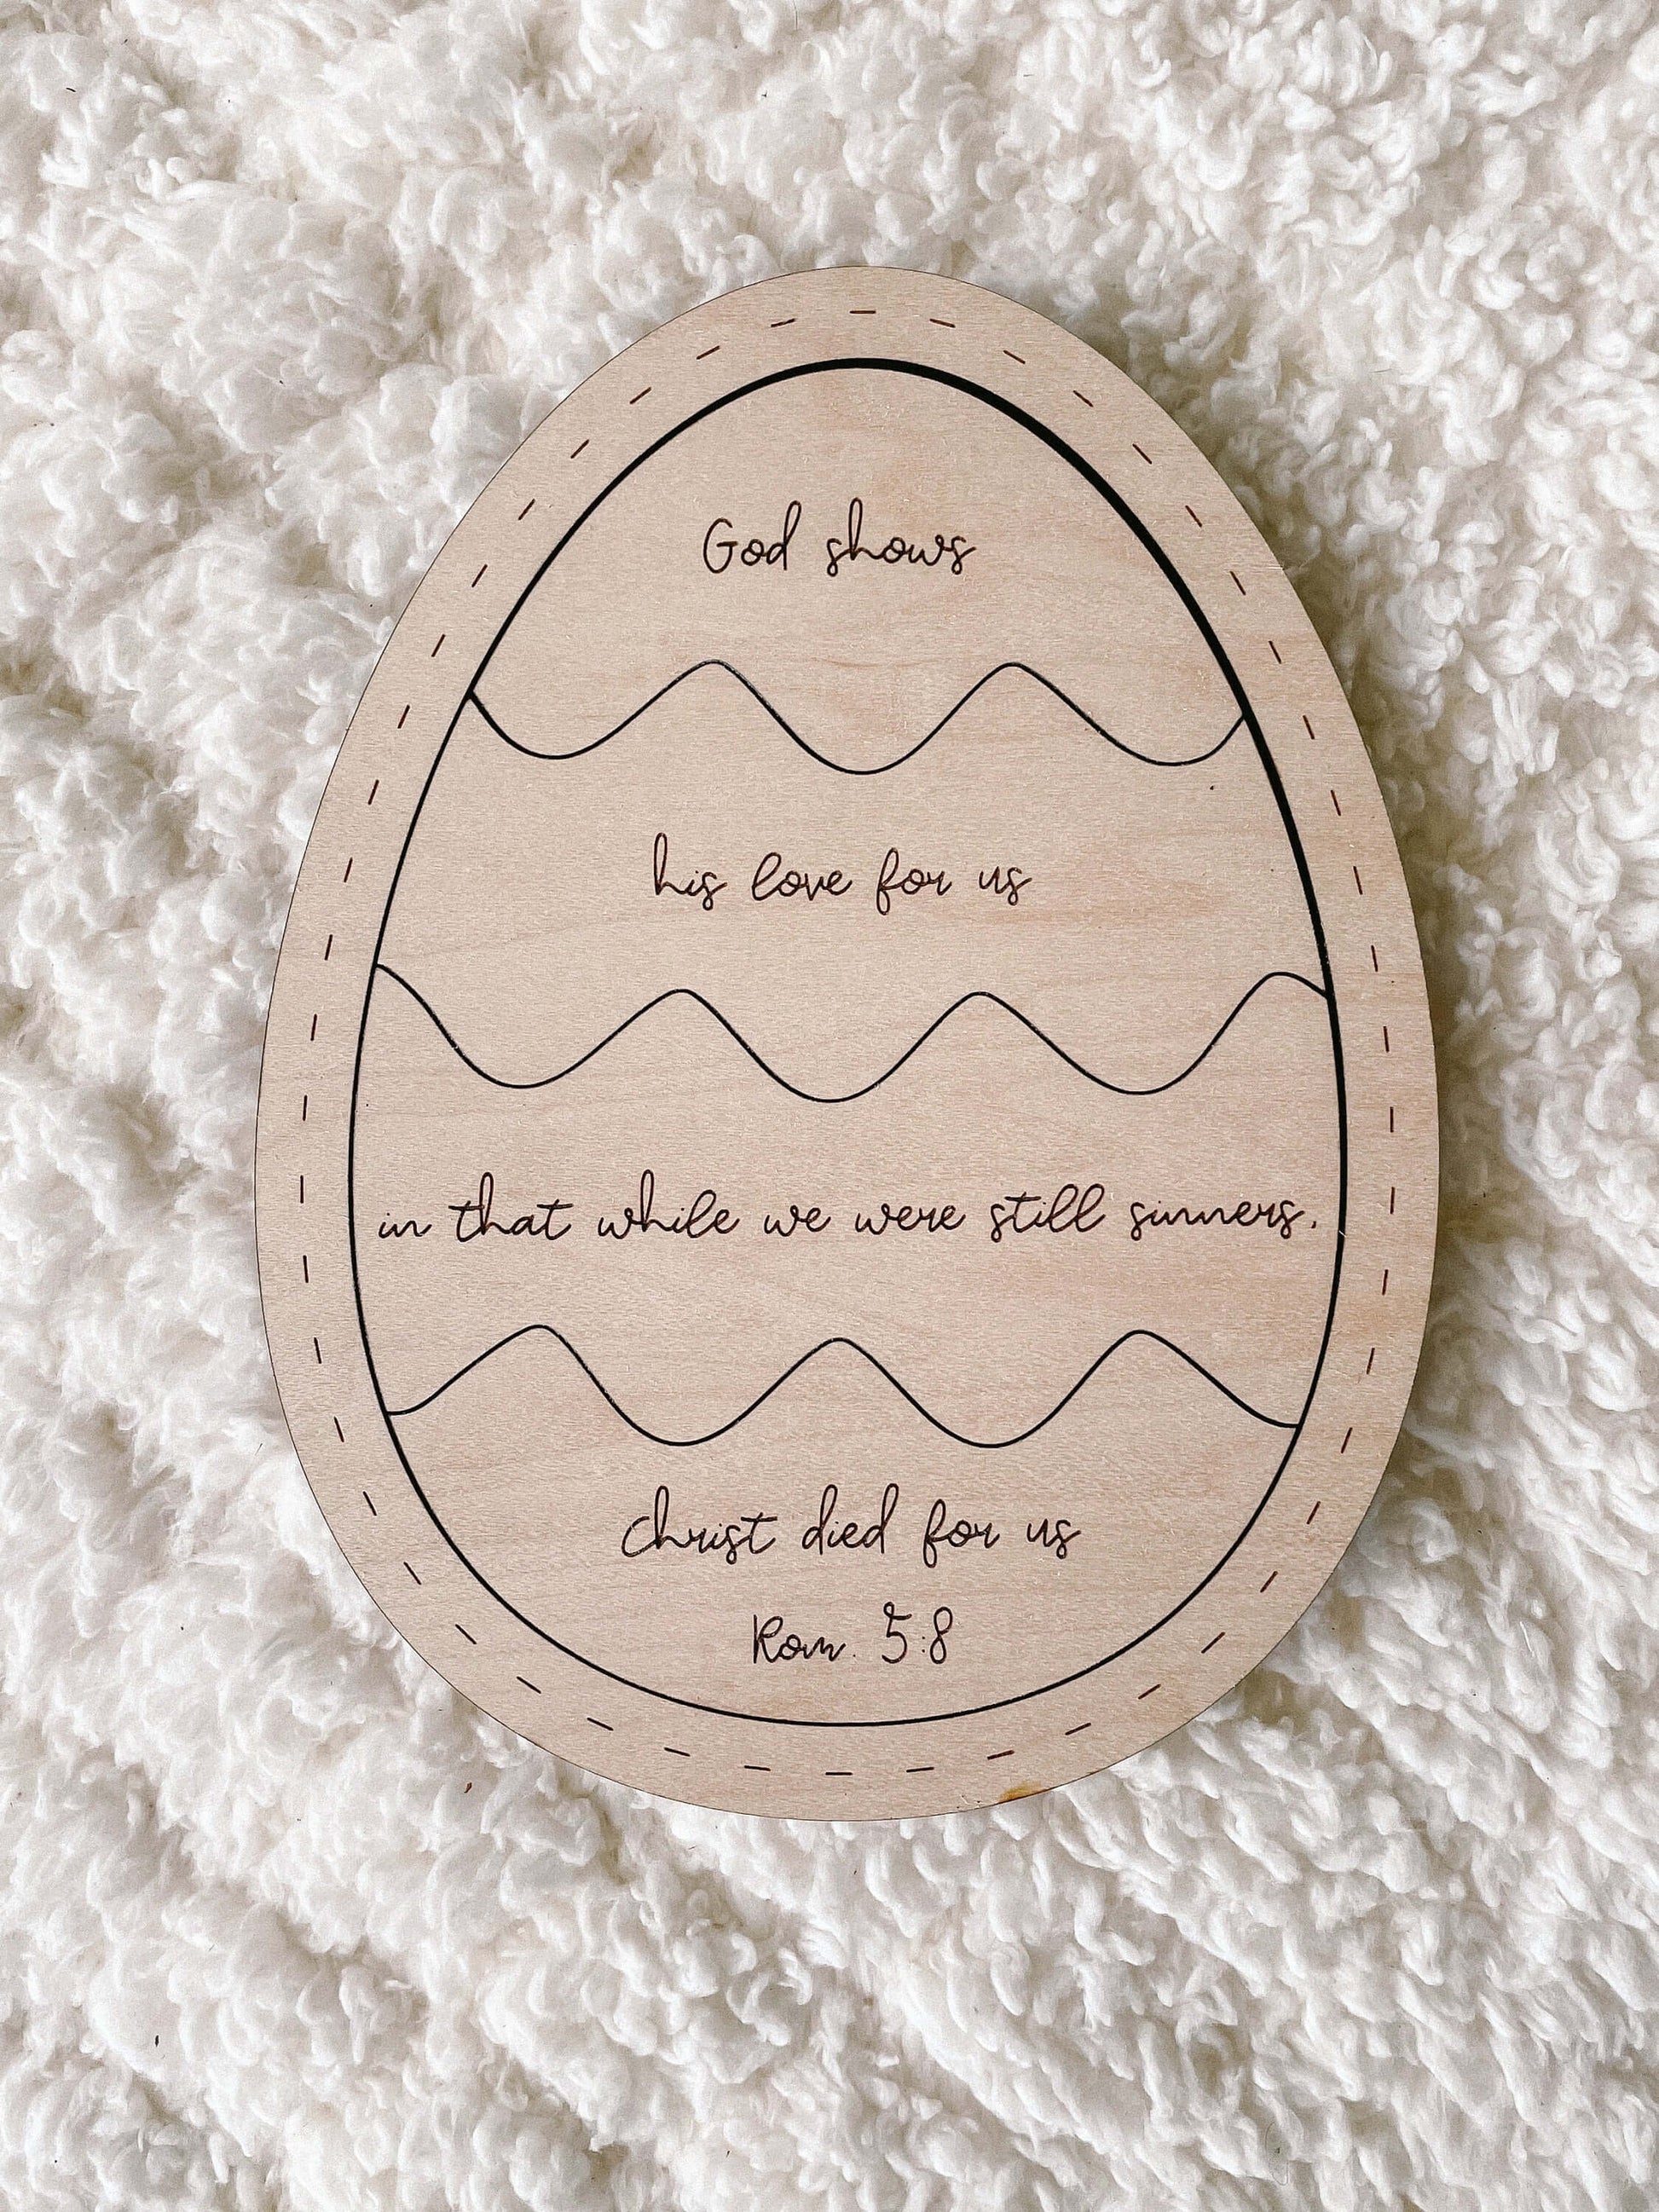 God shows
his love for us
in that while we were still sinners.
Christ died for us
Rom. 5:8